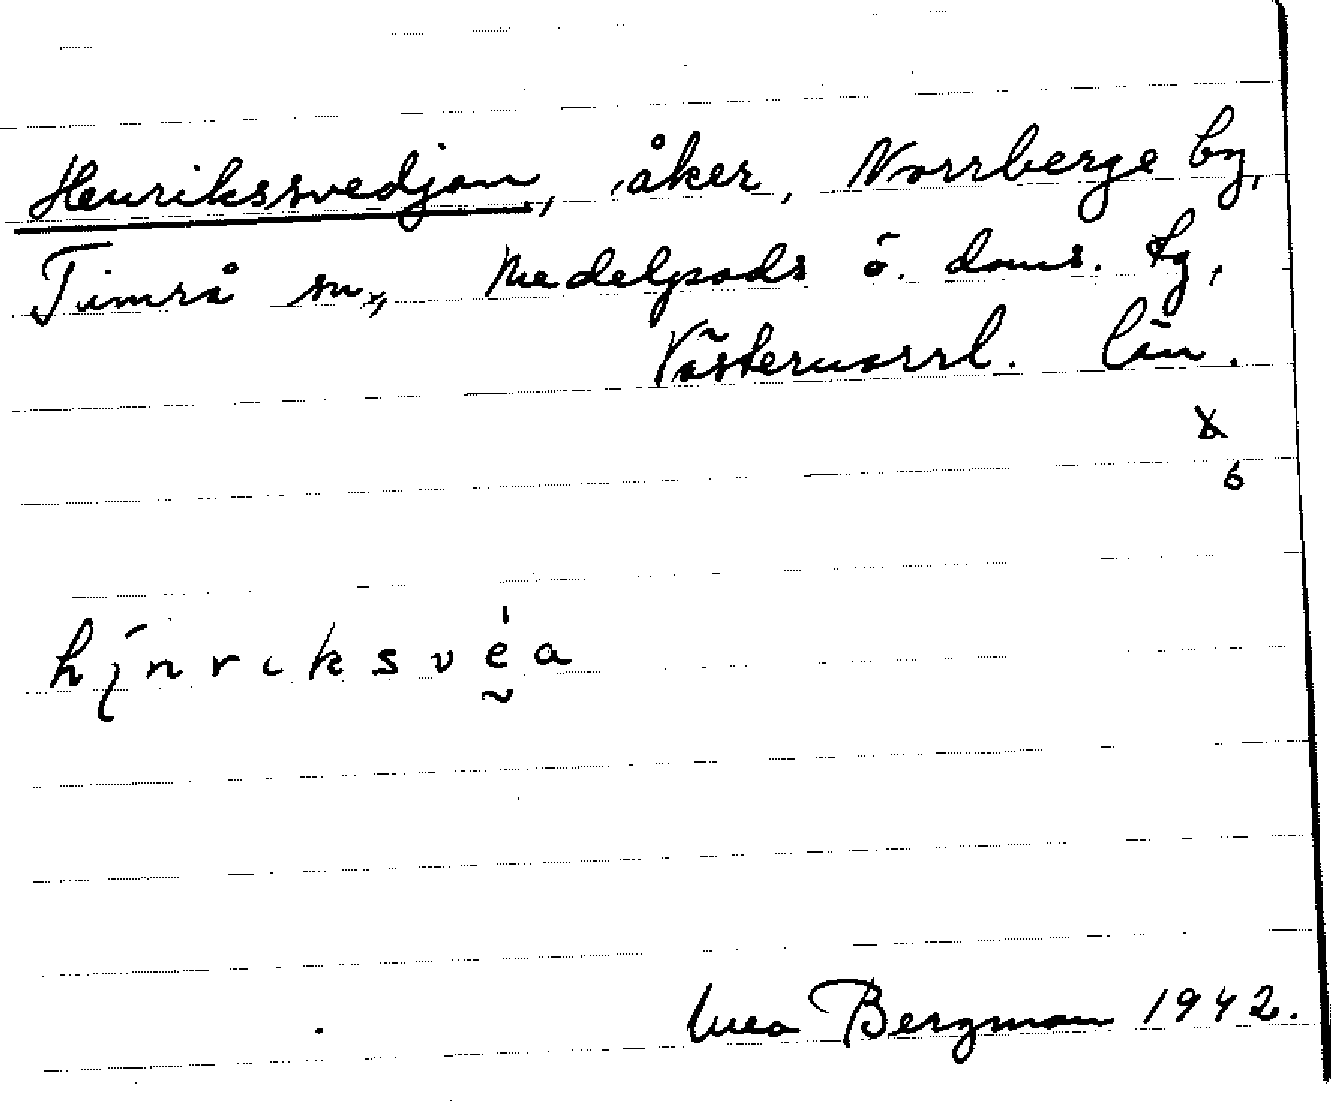 Henrikssvedjan, åker, Norrberge by,
Timrå sn, Medelpads ö. doms. tg,
Västernorrl. län.
6
Bergman 1942.